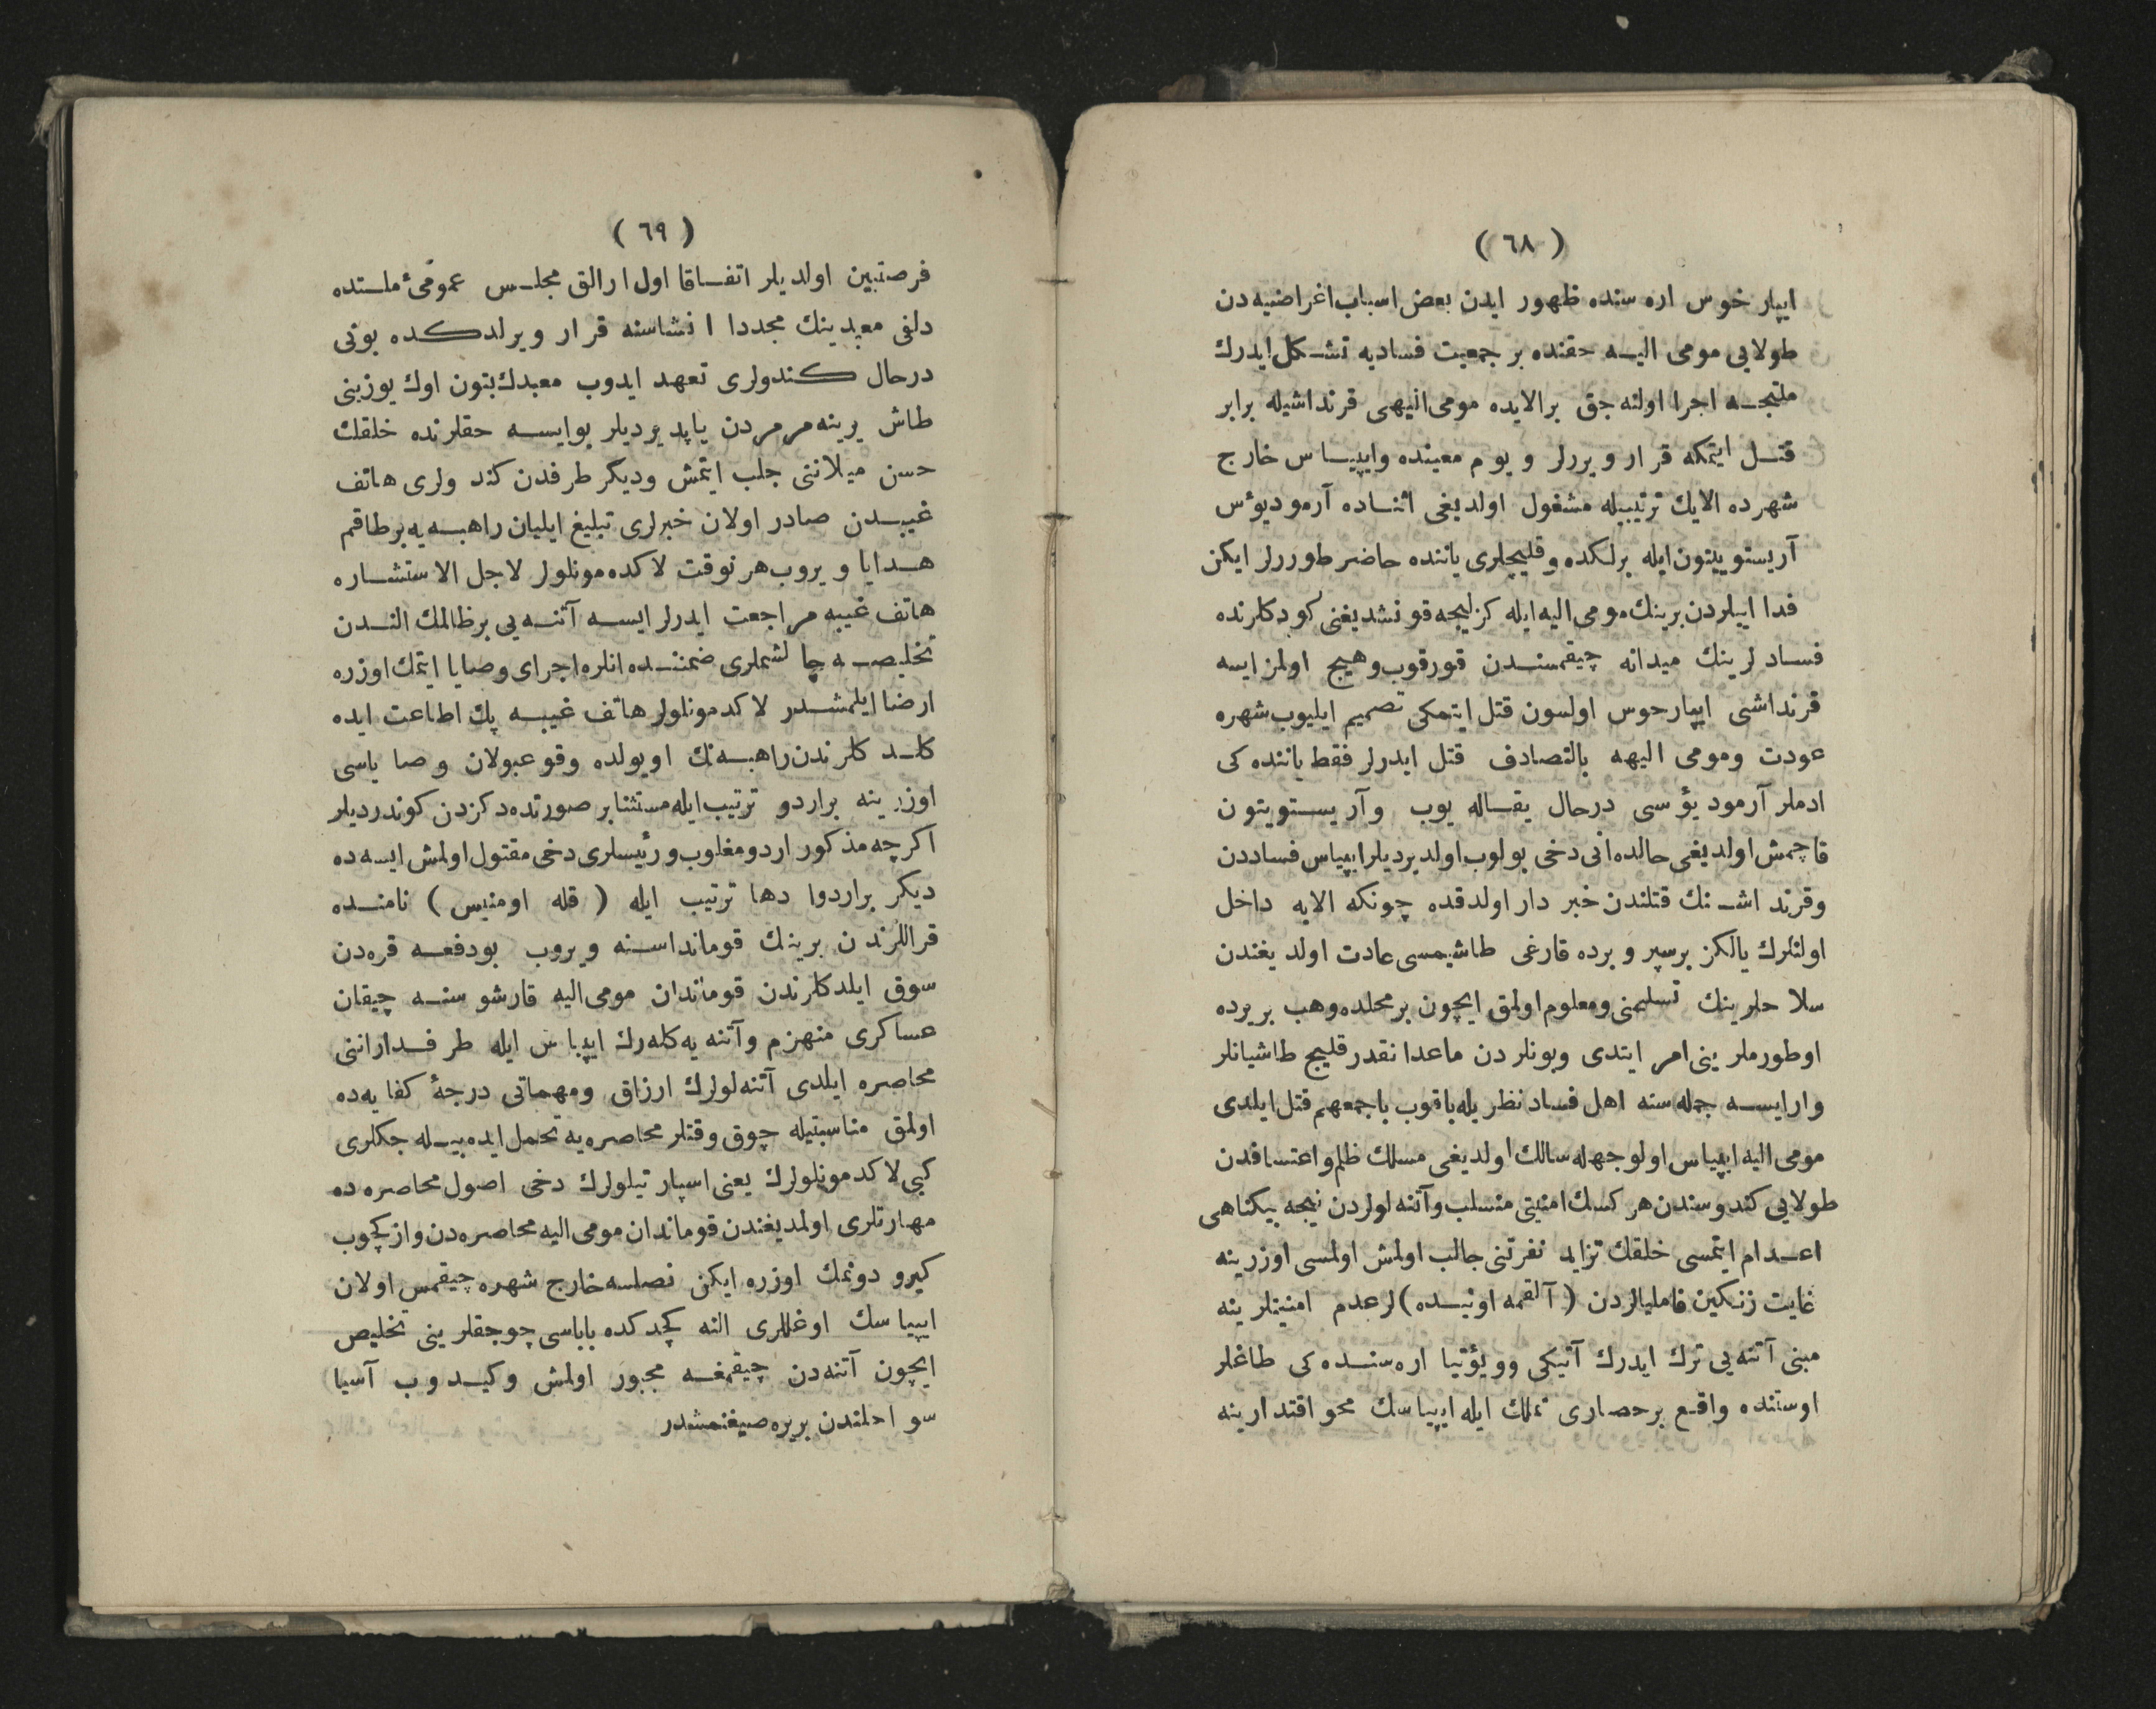 ( ٦٨ )
ایپار خوس اره سنده ظهور ایدن بعض اسباب اغراضیه دن
طولایی مومی الیه حقنده بر جمعیت فسادیه تشکل ایدرك
ملتجه اجرا اولنه جق بر الایده مومی الیهی قرنداشیله برابر
قتل ایتمكه قرار ویررلر و یوم معینده وایپیاس خارج
شهرده الایك ترتیبیله مشغول اولدیغی اثناده آرمودیؤس
آریستوییتون ایله برلكده وقلیچلری یاننده حاضر طوررلر ایكن
فداییلردن برینك مومی الیه ایله كزلیجه قونشدیغنی كودكلرنده
فسادلرینك میدانه چیقمسندن قورقوب وهیچ اولمز ایسه
قرنداشی ایپارخوس اولسون قتل ایتمكی تصمیم ایلیوب شهره
عودت ومومی الیهه بالتصادف قتل ایدرلر فقط یاننده كی
ادملر آرمودیؤسی درحال یقاله یوب وآریستویتون
قاچمش اولدیغی حالده انی دخی بولوب اولدیردیلر ایپیاس فساددن
وقرنداشنك قتلندن خبردار اولدقده چونكه الایه داخل
اولنلرك یالكز برسپر و برده قارغی طاشیمسی عادت اولدیغندن
سلاحلرینك تسلیمنی ومعلوم اولمق ایچون بر محلده وهب بریرده
اوطورملرینی امر ایتدی وبونلردن ماعدا نقدر قلیچ طاشیانلر
وارایسه جمله سنه اهل فساد نظریله باقوب باجمعهم قتل ایلدی
مومی الیه ایپیاس اولوجهله سالك اولدیغی مسلك ظلم واعتسافدن
طولایی كندوسندن هر كسك امنیتی منسلب وآتنه لولردن نیجه بیكناهی
اعدام ایتمسی خلقك تزاید نفرتنی جالب اولمش اولمسی اوزرینه
غایت زنكین فامیلیالردن ( آلقمه اونیده ) لر عدم امنیتلرینه
مبنی آتنه یی ترك ایدرك آتیكی وویؤتیا اره سنده كی طاغلر
اوستنده واقع بر حصاری تملك ایله ایپیاسك محو اقتدارینه
( ٦٩ )
فرصتبین اولدیلر اتفاقا اول ارالق مجلس عمومیٔ ملتده
دلفی معبدینك مجددا انشاسنه قرار ویرلدكده بونی
درحال كندولری تعهد ایدوب معبدك بتون اوك یوزینی
طاش یرینه مرمردن یاپدیردیلر بوایسه حقلرنده خلقك
حسن میلاننی جلب ایتمش ودیگر طرفدن كندولری هاتف
غیبدن صادر اولان خبرلری تبلیغ ایلیان راهبه یه برطاقم
هدایا ویروب هر نوقت لاكده مونلولر لاجل الاستشاره
هاتف غیبه مراجعت ایدرلر ایسه آتنه یی برظالمك الندن
تخلیصه چالشملری ضمننده انلره اجرای وصایا ایتمك اوزره
ارضا ایلمشدر لاكدمونلولر هاتف غیبه پك اطاعت ایده
كلدكلرندن راهبه نك اویولده وقوعبولان وصایاسی
اوزرینه براردو ترتیب ایله مستثنا بر صورتده دكزدن كوندردیلر
اكرچه مذكور اردو مغلوب ورئیسلری دخی مقتول اولمش ایسه ده
دیگر براردوا دها ترتیب ایله ( قله اومنیس ) نامنده
قراللرندن برینك قومانداسنه ویروب بودفعه قره دن
سوق ایلدكلرندن قوماندان مومی الیه قارشوسنه چیقان
عساكری منهزم وآتنه یه كله رك ایپیاس ایله طرفدارانی
محاصره ایلدی آتنه لولرك ارزاق ومهماتی درجهٔ كفایه ده
اولمق مناسبتیله چوق وقتلر محاصره یه تحمل ایده بیله جكلری
كبی لاكدمونلولرك یعنی اسپارتیلولرك دخی اصول محاصره ده
مهارتلری اولمدیغندن قوماندان مومی الیه محاصره دن وازكچوب
كیرو دونمك اوزره ایكن نصلسه خارج شهره چیقمس اولان
ایپیاسك اوغللری النه كچدكده باباسی چوجقلرینی تخلیص
ایچون آتنه دن چیقمغه مجبور اولمش وكیدوب آسیا
سواحلندن بریره صیغنمشدر